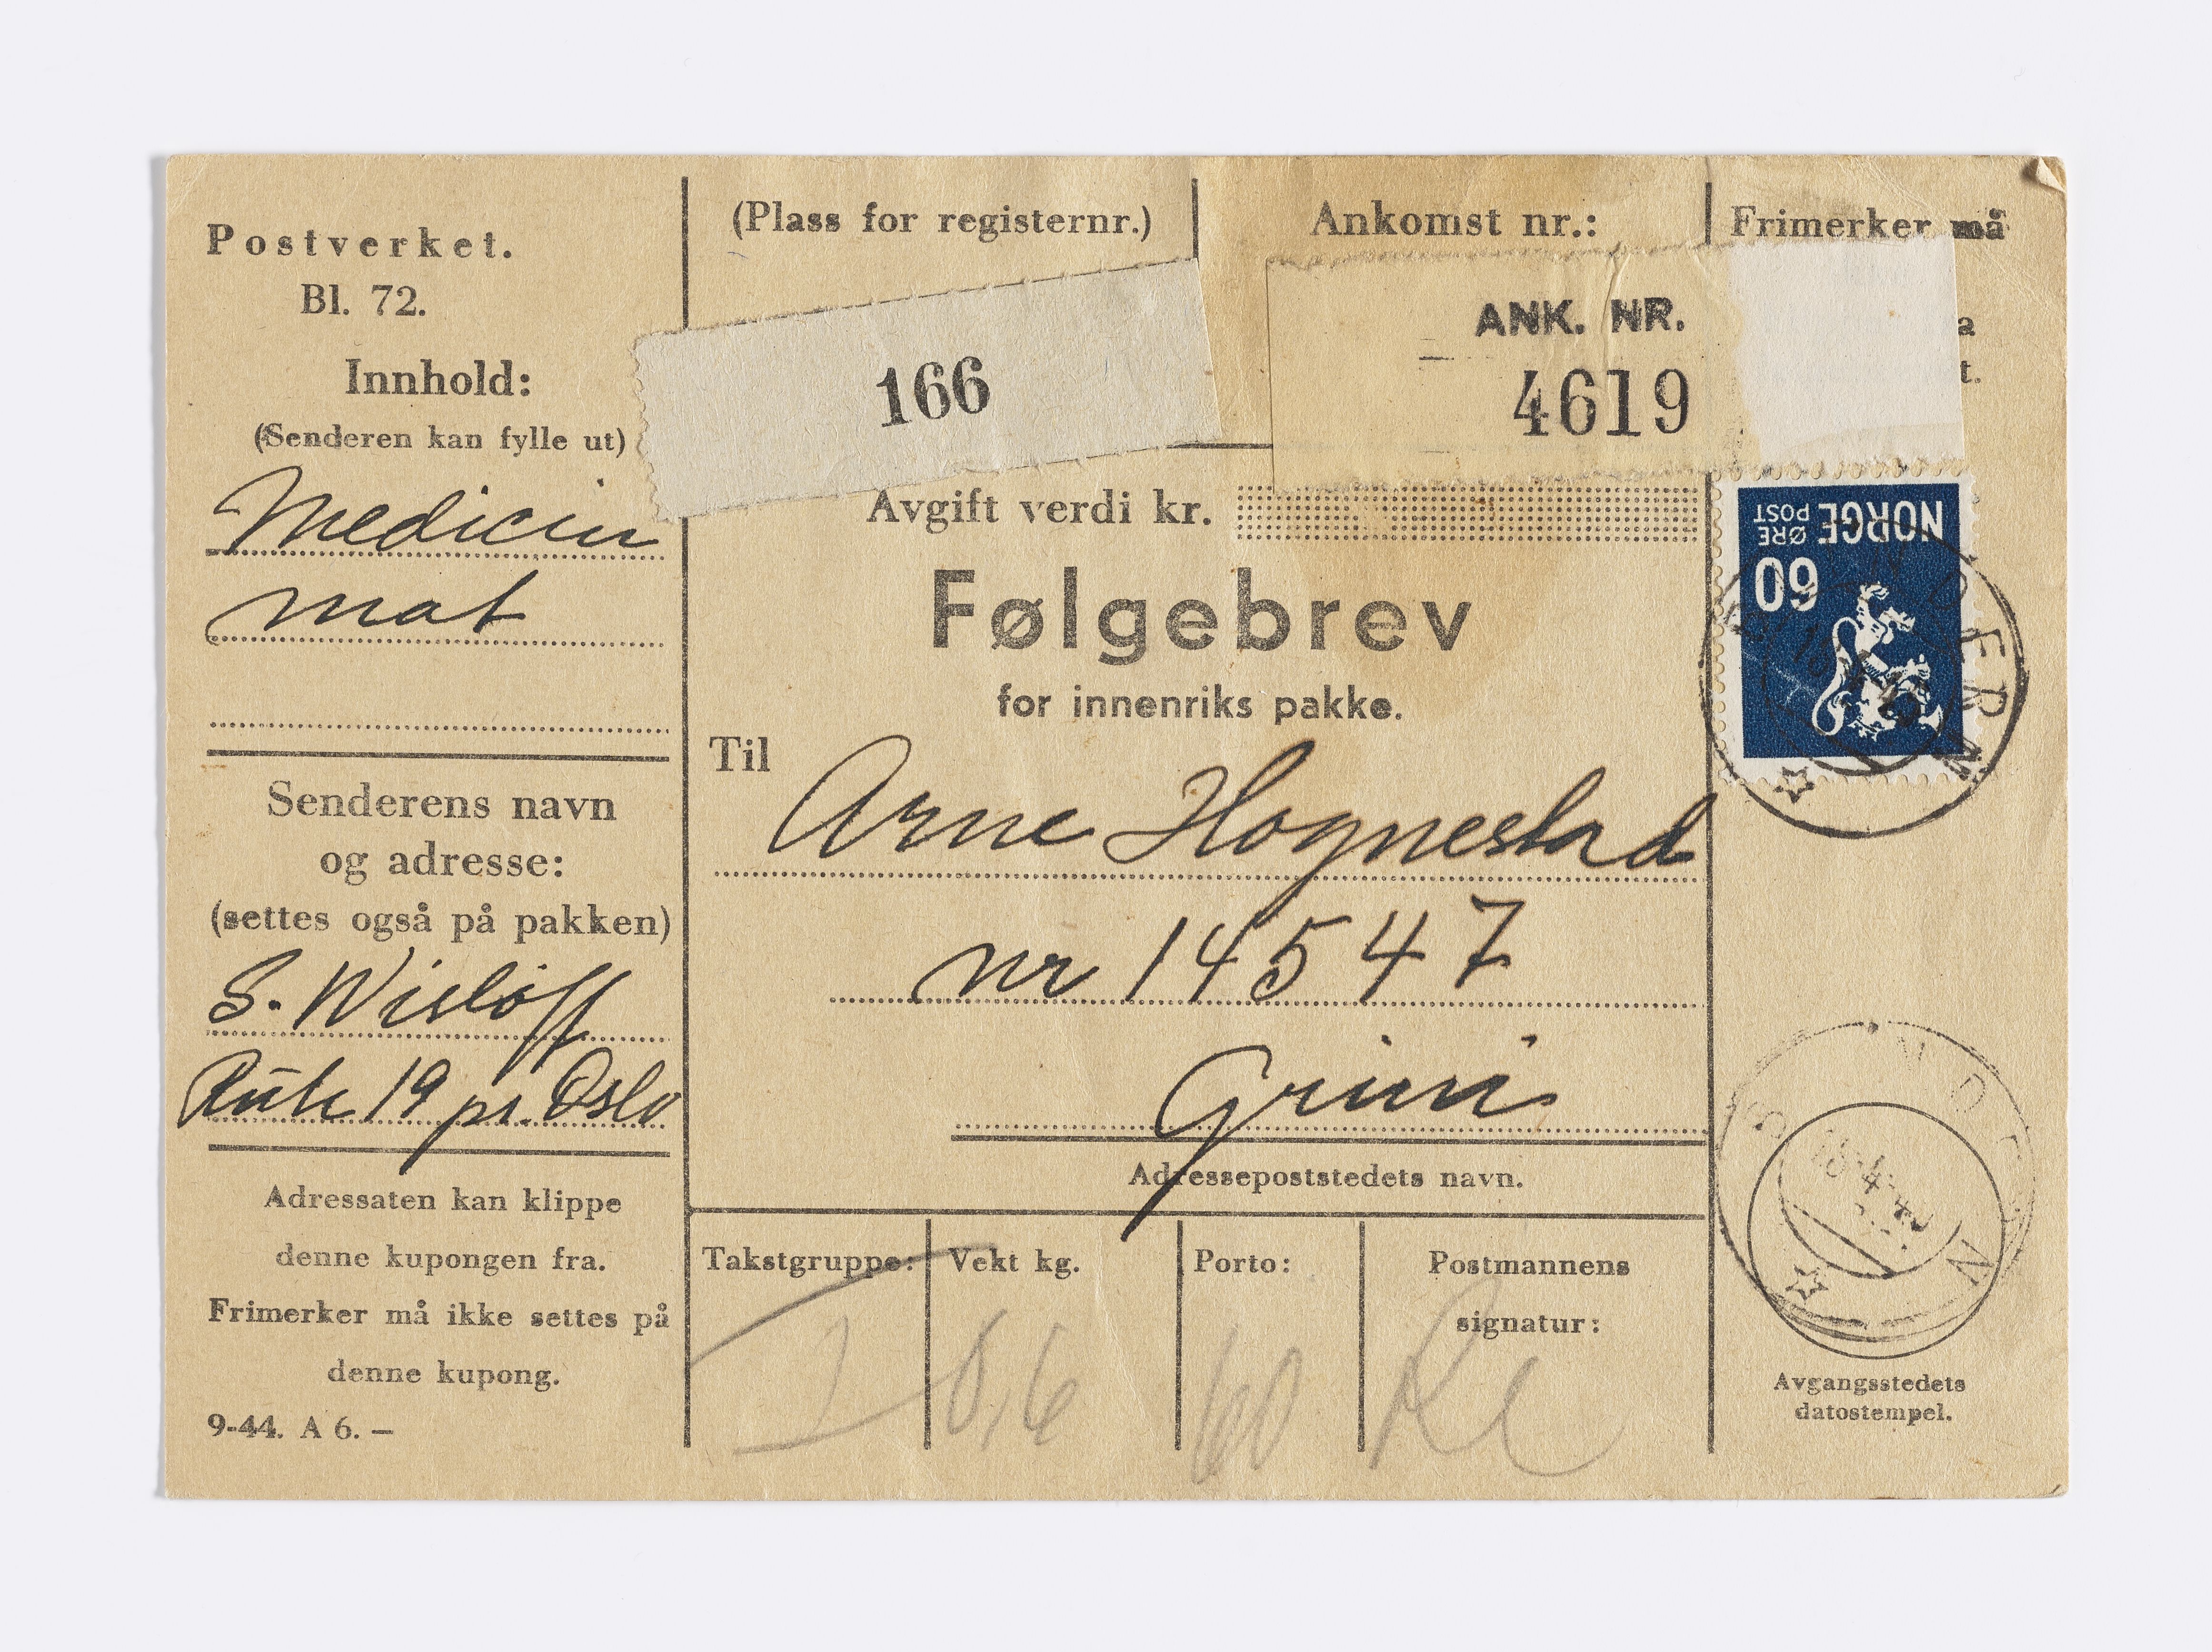 Postverket.
Bl. 72.
Innhold:
(Senderen kan fylle ut)
Medicin
mat
Senderens navn
og adresse:
(settes også på pakken)
S. Wisløff
Rute 19 pr. Oslo
Adressaten kan klippe
denne kupongen fra.
Frimerker må ikke settes på
denne kupong.
9-44. A 6. —
(Plass for registernr.)
166
Ankomst nr.:
ANK. NR.
4619
Avgift verdi kr.
Følgebrev
for innenriks pakke.
Til
Arne Hognestad
nr 14547
Grini
Adressepoststedets navn.
Takstgruppe:
I
Vekt kg.
0,6
Porto:
60
Postmannens
signatur:
Frimerker må
a
t.
NORGE
POST
60
ØRE
Avgangsstedets
datostempel.